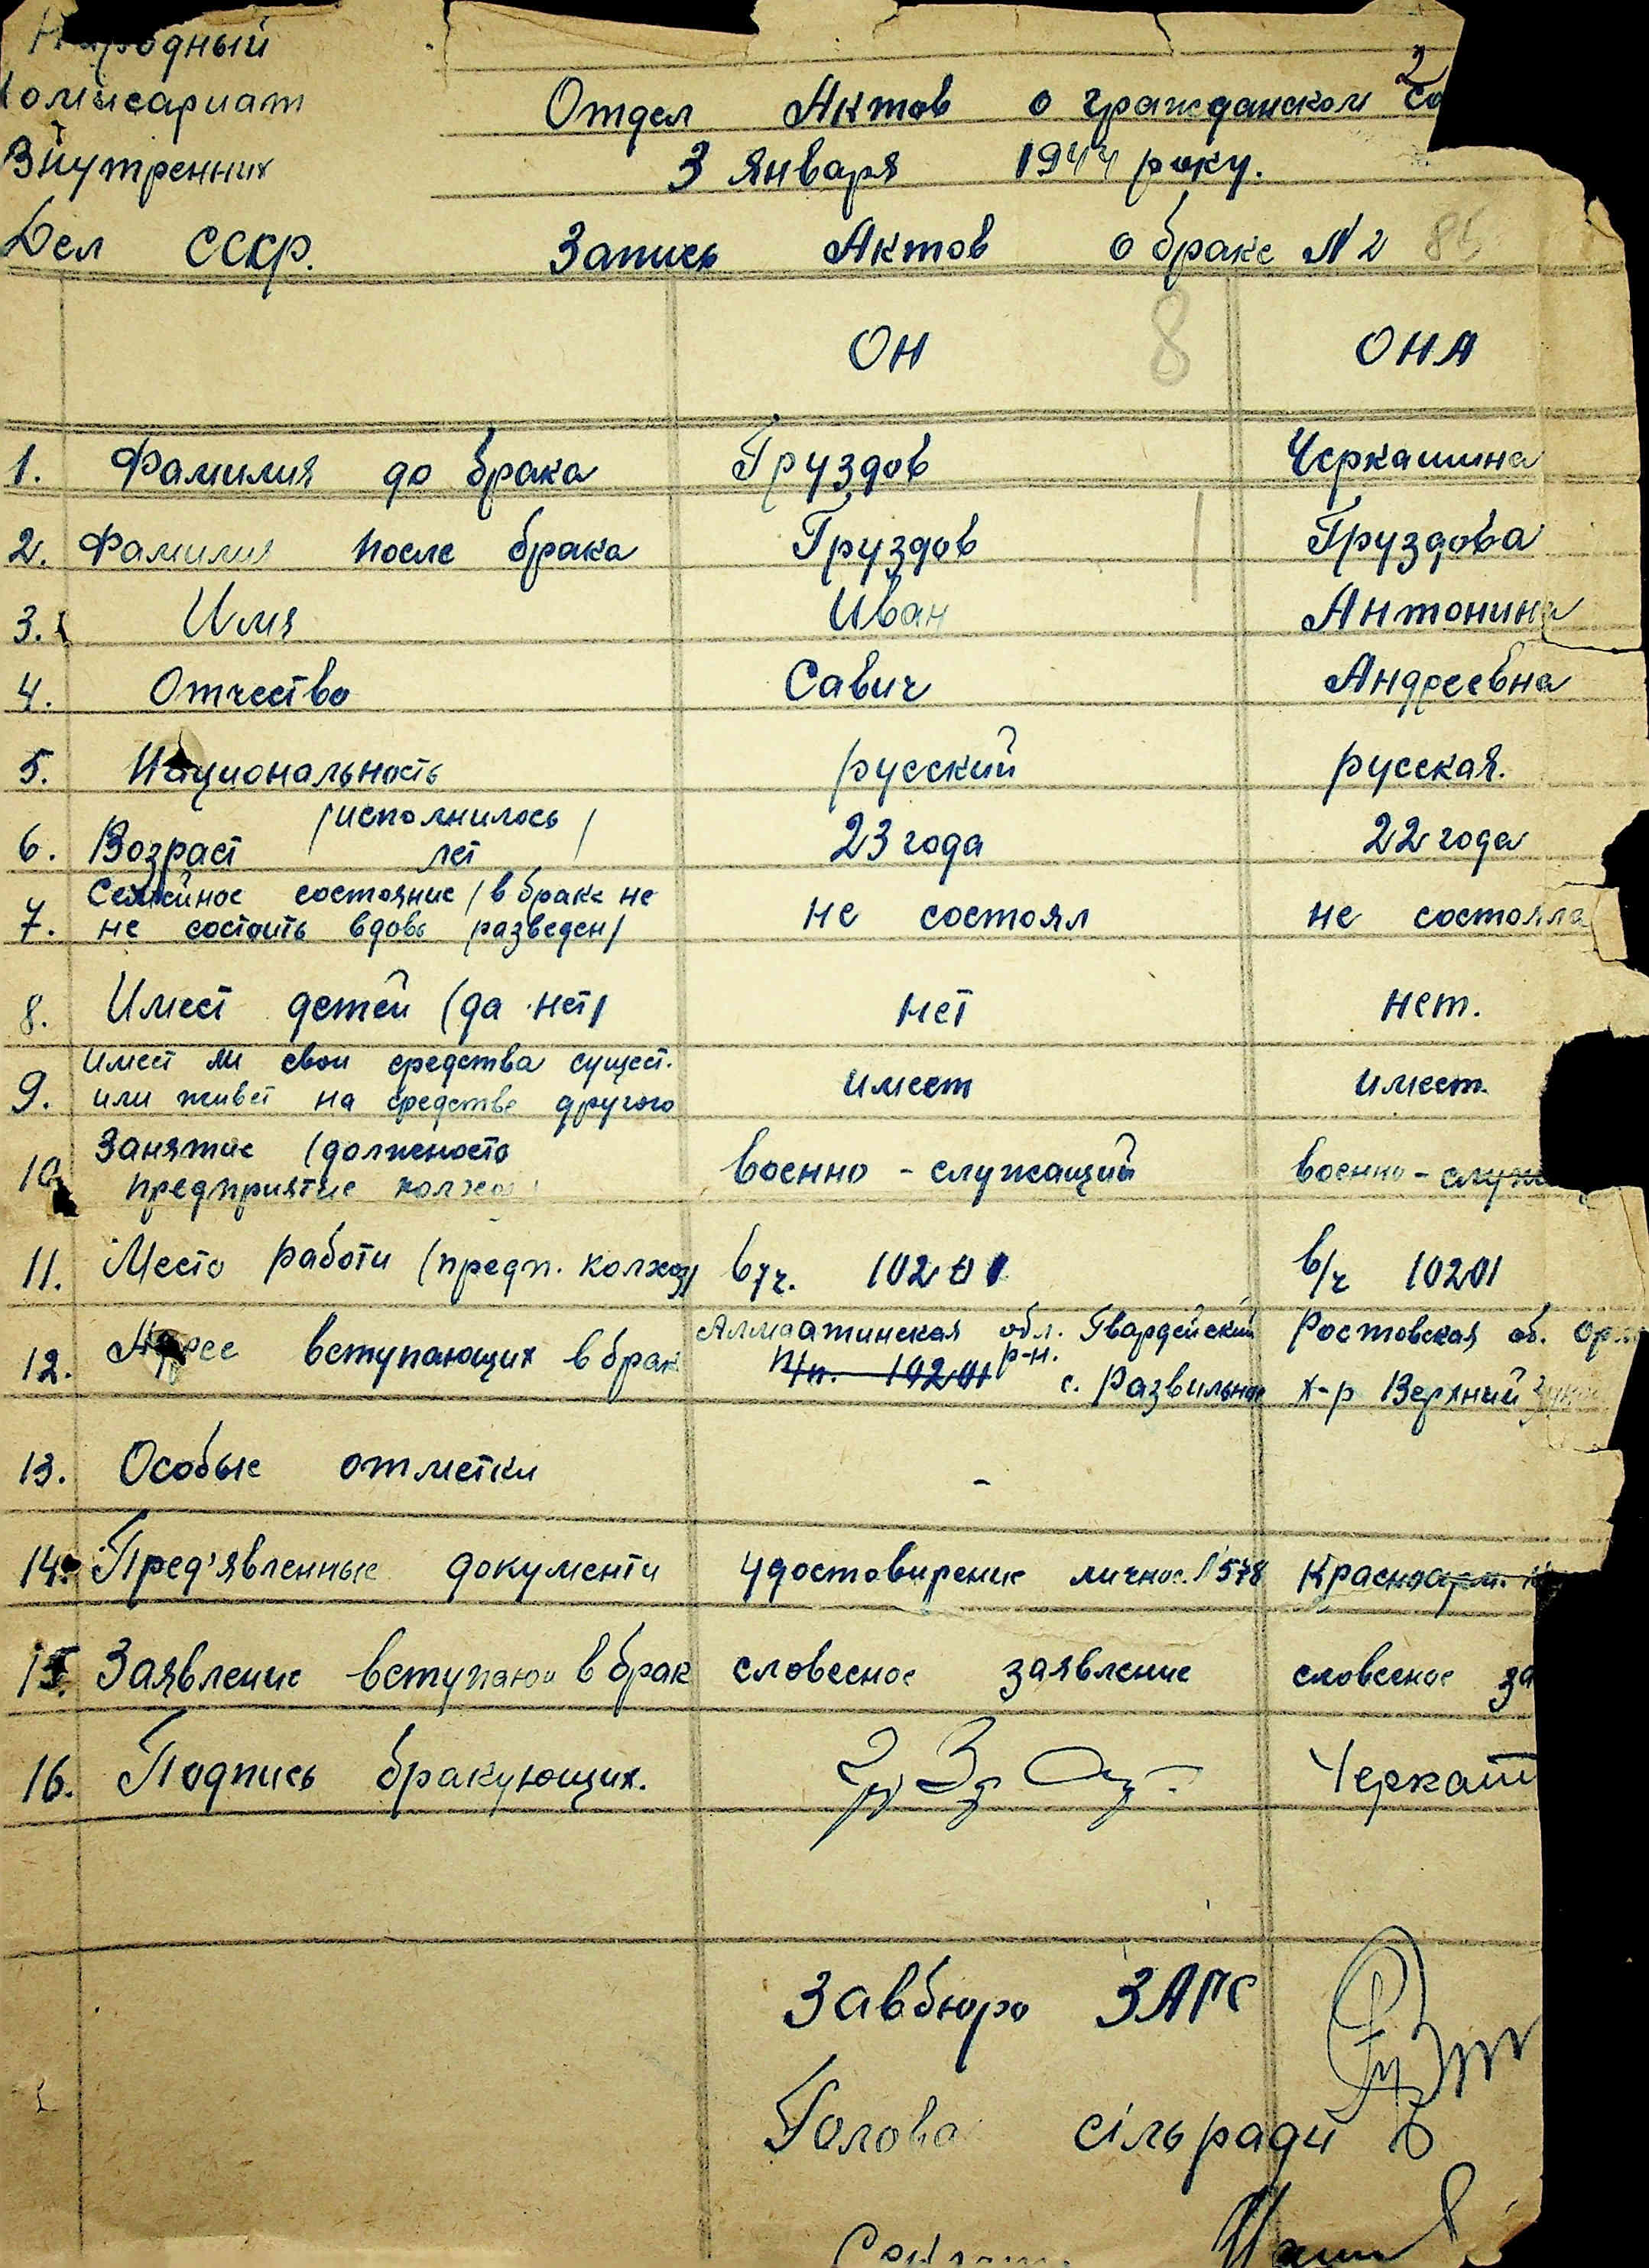 Народный
Комисариат
Внутренних
Дел СССР.
2
Отдел Актов о гражданском
3 января 1944 року.
Запись Актов о браке № 2
8
ОН ОНА
1. Фамилия до брака Груздов Черкашина
2. Фамилия после брака Груздов Груздова
3. Имя Иван Антонина
4. Отчество Савич Андреевна
5. Национальность русский русская.
6. Возраст /исполнилось лет/ 23 года 22 года
7. Семейное состояние /в браке не
не состоить вдова разведен/ не состоял не состояла
8. Имеет детей (да нет/ нет нет.
9. Имеет ли свои средства сущест.
или живет на средства другого имеет имеет.
10. Занятие (должность
предприятие колхоз военно - служащий военно -
11. Место работи (предп. колхоз/ в/ч. 10201 в/ч 10201
12. Адрес вступающих в брак Алмаатинская обл. Гвардейский р-н. Ростовская об.
п/п. 10201 с. Развильное х-р Верхний
13. Особые отметки -
14. Пред'явленные документи Удостовирение личнос. № 578 Красноарм.
15. Заявление вступающ в брак словесное заявление словесное за
16. Подпись бракующих. Черкаш
Завбюро ЗАГС
Голова сільради